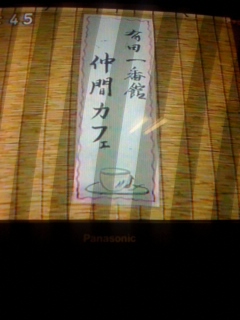 45
田一番館
仲間カフェ
Panasonic